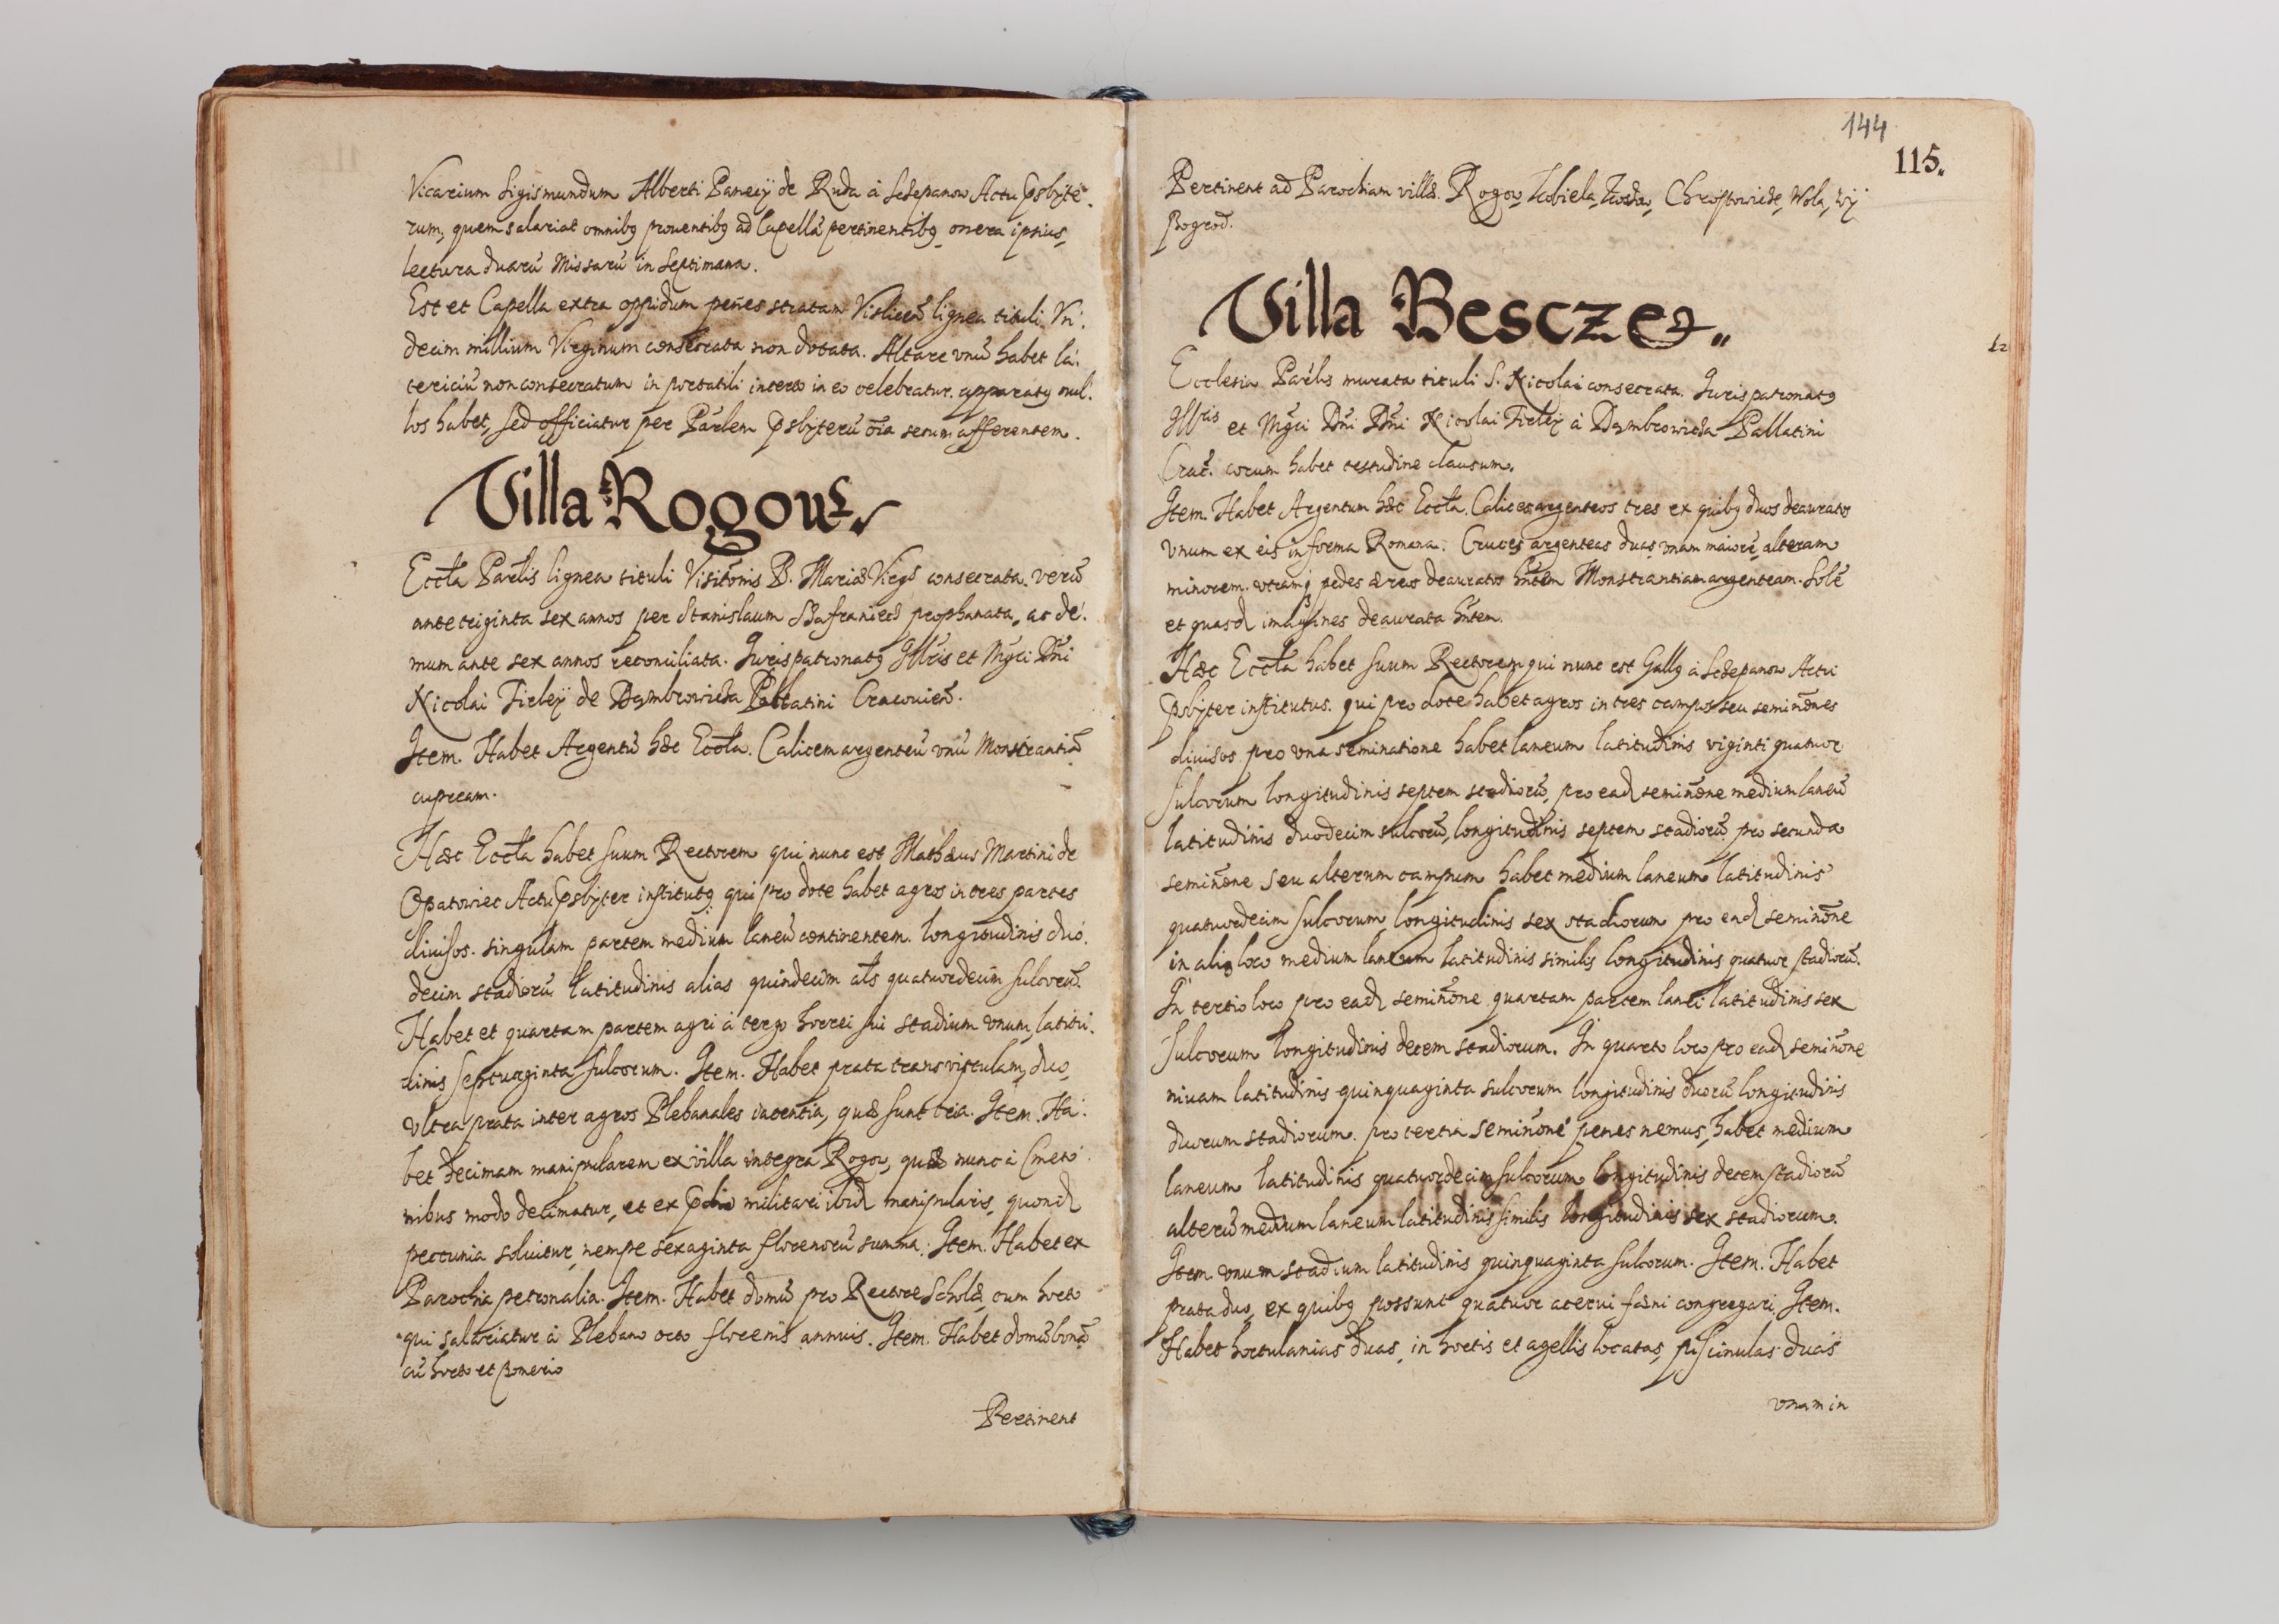 Vicarium Sigismundum Alberti de Ruda à Sczepanow Actu Psbyte-
rum, quem salariat omnibꝫ prouentibꝫ ad Capellā pertinentibꝫ, onera ipsius,
lectura duarū Missarū in Septimana.
Est et Capella extra oppidum penes stratam Visliceñ lignea tituli Vn-
decim millium Virginum consecrata non dotata. Altare vnū habet la-
tericiū non consecratum in portatili inserto in eo celebratur. apparatꝰ nul-
los habet, sed officiatur per Parlem Psbyterū oīa secum afferentem.
Villa Rogow
Eccla Parlis lignea tituli Visitōnis B. Mariæ Virgs consecrata. verū
ante triginta sex annos per Stanislaum Szafraniecz prophanata, ac de-
mum ante sex annos reconciliata. Juris patronatꝰ Illris et Mgci Dñi
Nicolai Firleÿ de Dąmbrowicza Pallatini Cracovieñ.
Item. Habet Argentū hæc Eccla. Calicem argenteū vnū Monstrantiā
cupream.
Hæc Eccla habet suum Rectorem qui nunc est Mathæus Martini de
Opatowiec Actu Psbyter institutꝰ qui pro dote habet agros in tres partes
diuisos. singulam partem medium laneū continentem. longitudinis duo-
decim stadiorū latitudinis alias quindecim als quatuordecim sulcorū.
Habet et quartam partem agri à tergo horrei sui stadium vnum, latitu-
dinis septuaginta sulcorum. Item. Habet prata trans vistulam, duo,
vltra prata inter agros Plebanales iacentia, quæ sunt tria. Item. Ha-
bet decimam manipularem ex villa integra Rogow, quæ nunc à Cmeto-
nibus modo decimatur, et ex Pdio militari ibid manipularis, quond
pecunia soluitur, nempe sexaginta florenorū summa. Item. Habet ex
Parochia petronalia. Item. Habet domū pro Rectore Scholæ, cum horto
qui salariatur à Plebano octo florenis annuis. Item. Habet domū bonā
cū horto et Pomerio
Pertinent
144
115.
Pertinent ad Parochiam villæ. Rogow, Kobiela, Chrostowicze, Wola, Wÿ
Pogrod.
Villa Bescze
Ecclesia Parlis murata tituli S. Nicolai consecrata. Juris patronatꝰ
Illris et Mgci Dñi Dñi Nicolai Firleÿ à Dąmbrowicza Pallatini
Crac. corum habet testudine clausum.
Item. Habet Argentum hæc Eccla. Calices argenteos tres ex quibꝫ duos deauratos
vnum ex eis in forma Romana. Cruces argenteas duas vnam maiorē, alteram
minorem. vtramq pedes æreos deauratos hñtem Monstrantiam argenteam. Solē
et quasd imagines deaurata hñtem.
Hæc Eccla habet suum Rectorem qui nunc est Gallꝰ à Sczepanow Actu
Psbyter institutus. qui pro dote habet agros in tres campos seu seminōnes
diuisos pro vna seminatione habet laneum latitudinis viginti quatuor
sulcorum longitudinis septem stadiorū, pro ead seminōne medium laneū
latitudinis duodecim sulcorū, longitudinis septem stadiorū pro secunda
seminōne seu alterum campum habet medium laneum latitudinis
quatuordecim sulcorum longitudinis sex stadiorum pro ead seminōne
in alio loco medium laneum latitudinis similis longitudinis quatuor stadiorū.
In tertio loco pro ead seminōne quartam partem lanei latitudinis sex
sulcorum longitudinis decem stadiorum. In quarto loco pro ead seminōne
niuam latitudinis quinquaginta sulcorum longitudinis duorū longitudinis
duorum stadiorum. pro tertia seminōne penes nemus, habet medium
laneum latitudinis quatuordecim sulcorum longitudinis decem stadiorū
alterū medium laneum latitudinis similis longitudinis sex stadiorum.
Item vnum stadium latitudinis quinquaginta sulcorum. Item. Habet
prata duo, ex quibꝫ possunt quatuor acerui fæni congregari. Item.
Habet hortulanias duas, in hortis et agellis locatas, piscinulas duas
vnam in